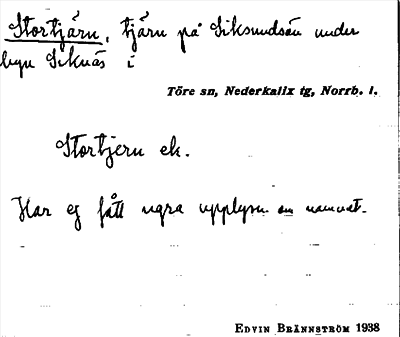 Stortjärn, tjärn på Siksundsån under
byn Siknäs i
Töre sn, Nederkalix tg, Norrb. l.
Stortjern ek.
Har ej fått ngra upplysn om namnet.
EDVIN BRÄNNSTRÖM 1938